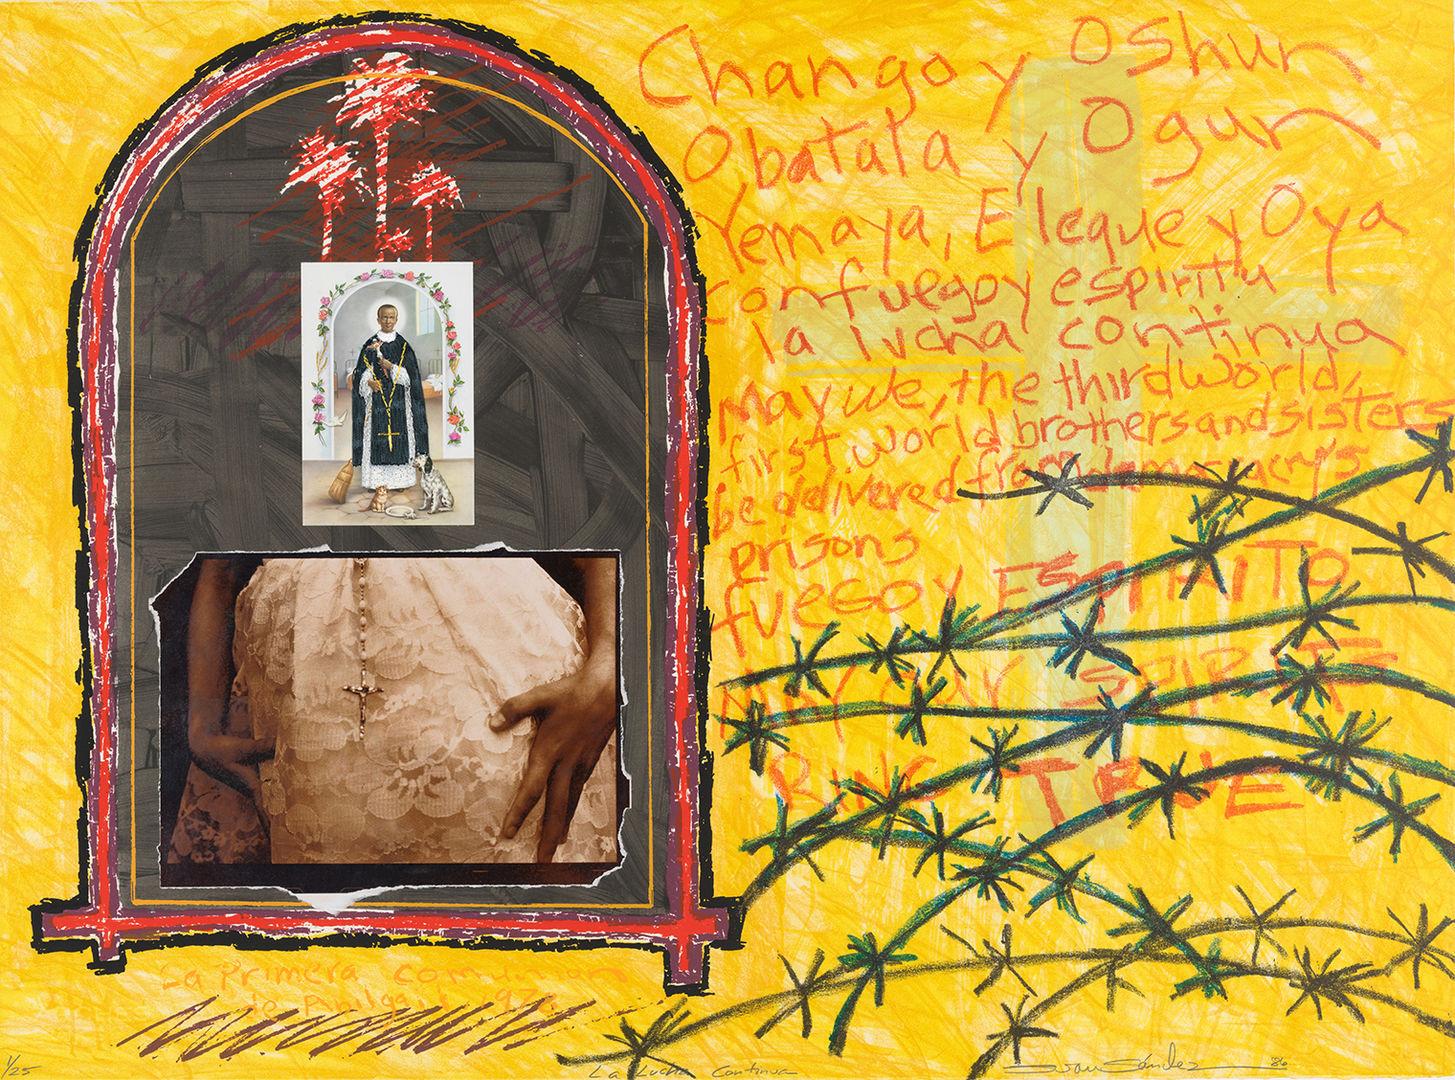 Chango y Oshun
Obatala y Ogun
Yemaya, Eleque y Oya
con fuego y espiritu
la lucha continua
May we, the third world,
first world brothers and sisters
be delivered from
prisons
fuego y ESPIRITO
MAY OUR SPIRITS
RING TRUE
La Primera comunion
de Abilgail 1973
1/25
La Lucha Continua
Juan Sánchez '86